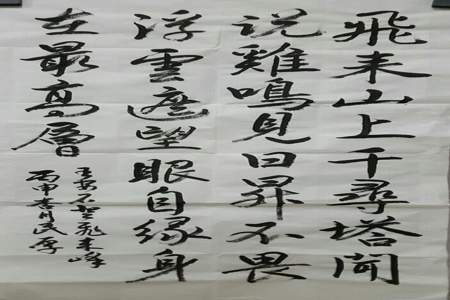 飛来山上千尋塔聞
说雞鳴見日昇不畏
浮雲遮望眼自缘身
在最高層
王安石登飛来峰
丙申